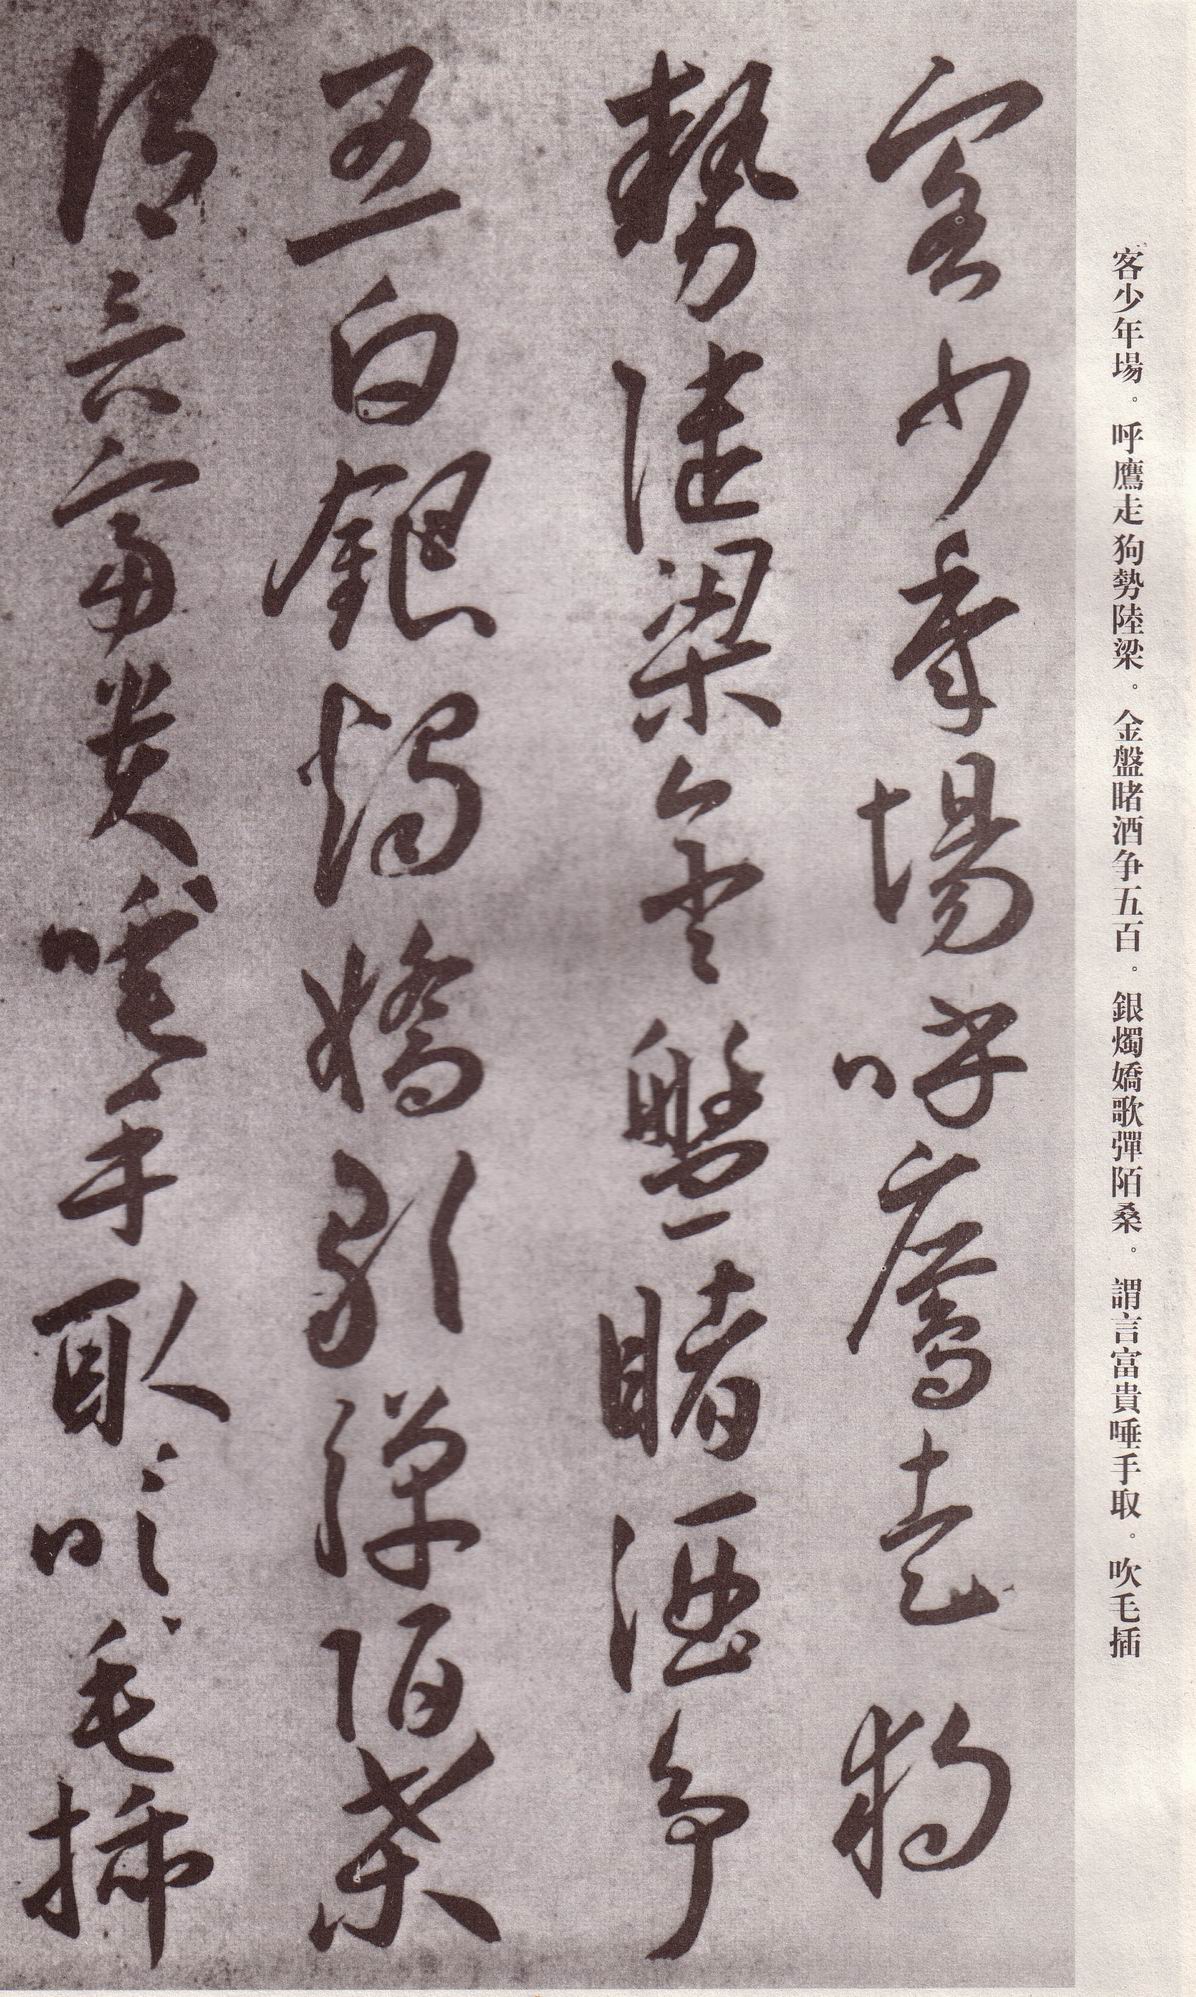 客少年場。呼鷹走狗勢陸梁。金盤睹酒争五百。銀燭嬌歌彈陌桑。謂言富貴唾手取。吹毛插
客少年場呼鷹走狗
勢陸梁金盤睹酒争
五百銀燭嬌歌彈陌桑
謂言富貴唾手取吹毛插